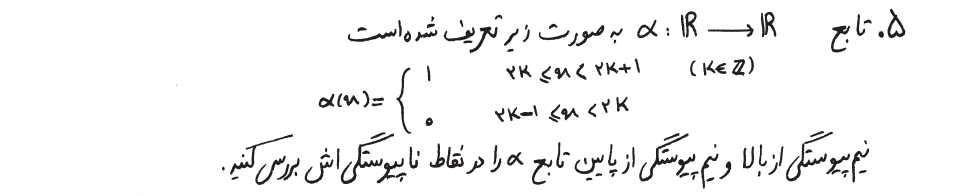 ۵. تابع α : ℝ ⟶ ℝ به صورت زیر تعریف شده است
α(x) = { ۱    ۲k ≤ x < ۲k+۱    (k ∈ ℤ)
۰    ۲k−۱ ≤ x < ۲k
نیم‌پیوستگی از بالا و نیم‌پیوستگی از پایین تابع α را در نقاط ناپیوستگی اش بررسی کنید.